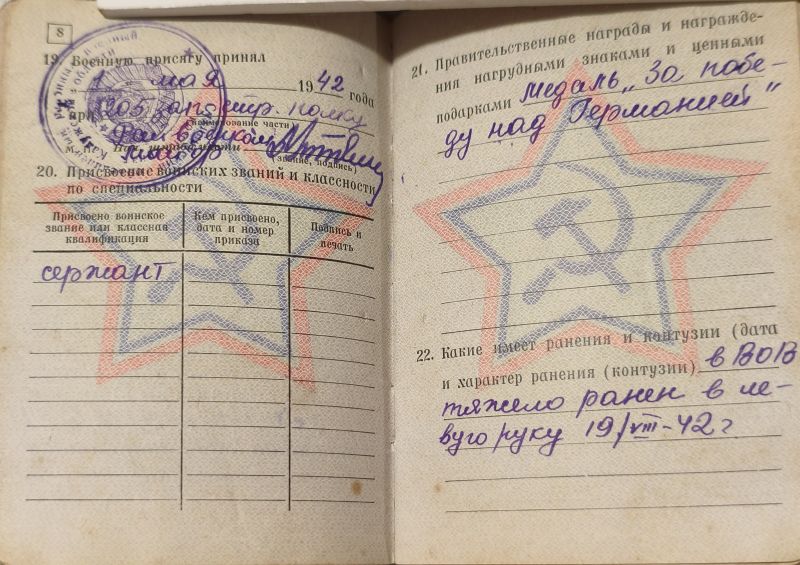 8
19. Военную присягу принял
1 мая 1942 года
при 1205 стр. полку
(наименование части)
Рай военком
майор
(звание, подпись)
20. Присвоение воинских званий и классности
по специальности
Присвоено воинское звание или классная квалификация
Кем присвоено, дата и номер приказа
Подпись и печать
сержант
21. Правительственные награды и награжде-
ния нагрудными знаками и ценными
подарками медаль „За побе-
ду над Германией"
22. Какие имеет ранения и контузии (дата
и характер ранения (контузии) в ВОВ
тяжело ранен в ле-
вую руку 19/VIII-42 г